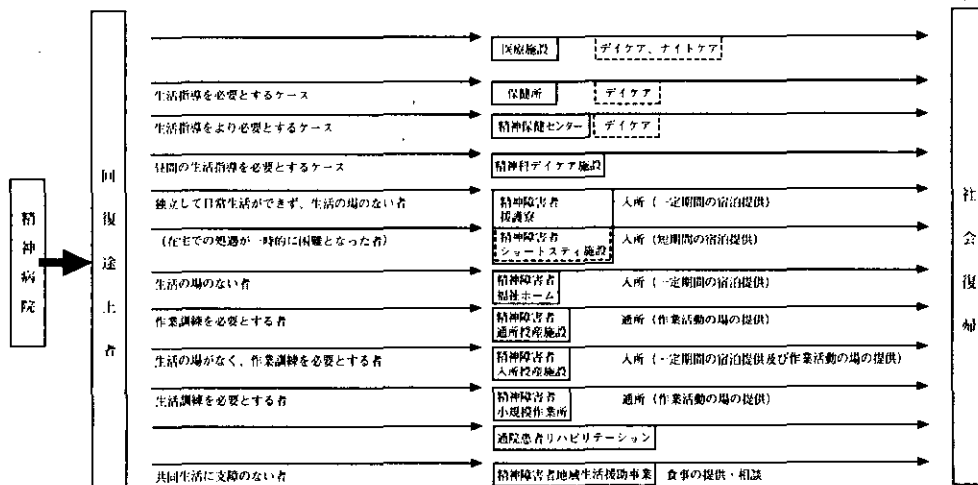 精神病院
回復途上者
医療施設 デイケア、ナイトケア
生活指導を必要とするケース 保健所 デイケア
生活指導をより必要とするケース 精神保健センター デイケア
昼間の生活指導を必要とするケース 精神科デイケア施設
独立して日常生活ができず、生活の場のない者 精神障害者 入所(一定期間の宿泊提供)
援護寮
(在宅での処遇が一時的に困難となった者) 精神障害者 入所(短期間の宿泊提供)
ショートスティ施設
生活の場のない者 精神障害者 入所(一定期間の宿泊提供)
福祉ホーム
作業訓練を必要とする者 精神障害者 通所(作業活動の場の提供)
通所授産施設
生活の場がなく、作業訓練を必要とする者 精神障害者 入所(一定期間の宿泊提供及び作業活動の場の提供)
入所授産施設
生活訓練を必要とする者 精神障害者 通所(作業活動の場の提供)
小規模作業所
通院患者リハビリテーション
共同生活に支障のない者 精神障害者地域生活援助事業 食事の提供・相談
社会復帰